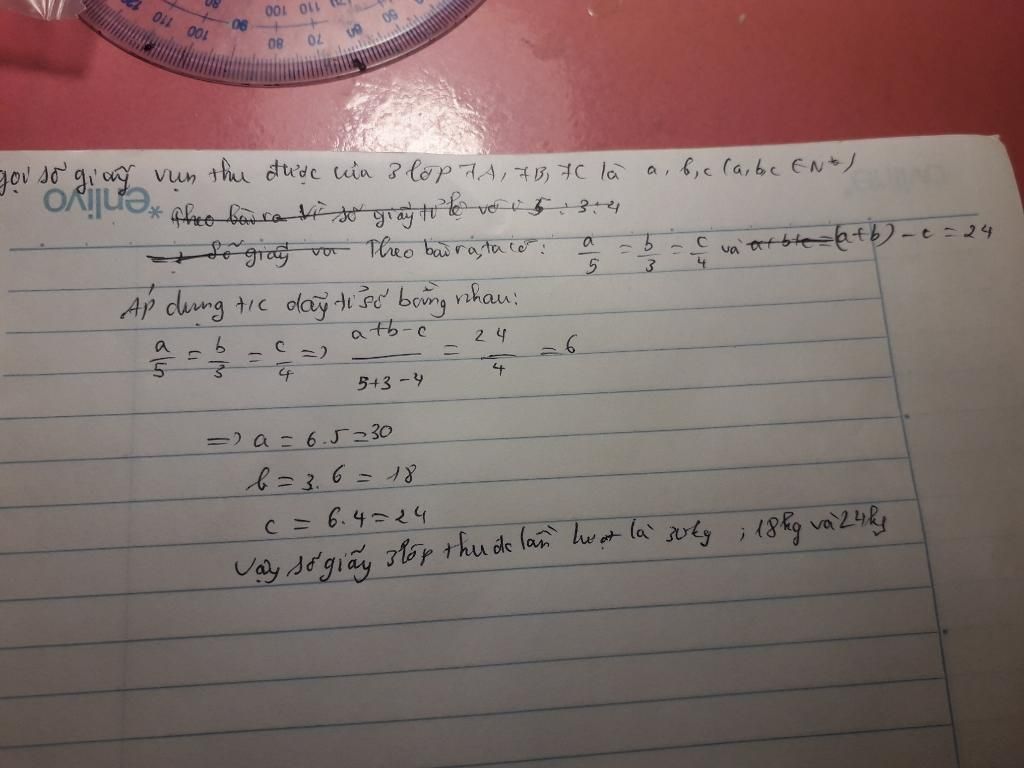 120 110 100 90 80 70 60 50
100 110
gọi số giấy vụn thu được của 3 lớp 7A, 7B, 7C là a, b, c (a, b c ∈ N*)
*enlivo
Theo bài ra vì số giấy tỉ lệ với 5 : 3 : 4
=> Số giấy và Theo bài ra, ta có: a/5 = b/3 = c/4 và a+b+c= (a+b) - c = 24
Áp dụng t/c dãy tỉ số bằng nhau:
a/5 = b/3 = c/4 => a+b-c/5+3-4 = 24/4 = 6
=> a = 6.5=30
b = 3.6 = 18
c = 6.4 = 24
Vậy số giấy 3 lớp thu dc lần lượt là 30kg ; 18kg và 24kg